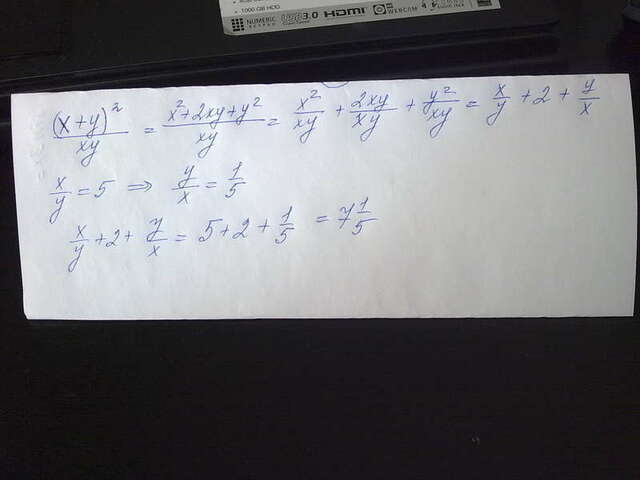 1000 GB HDD
NUMERIC USB 3.0 HDMI WEBCAM
(x+y)²/xy = x²+2xy+y²/xy = x²/xy + 2xy/xy + y²/xy = x/y + 2 + y/x
x/y = 5 ⇒ y/x = 1/5
x/y + 2 + y/x = 5 + 2 + 1/5 = 7 1/5